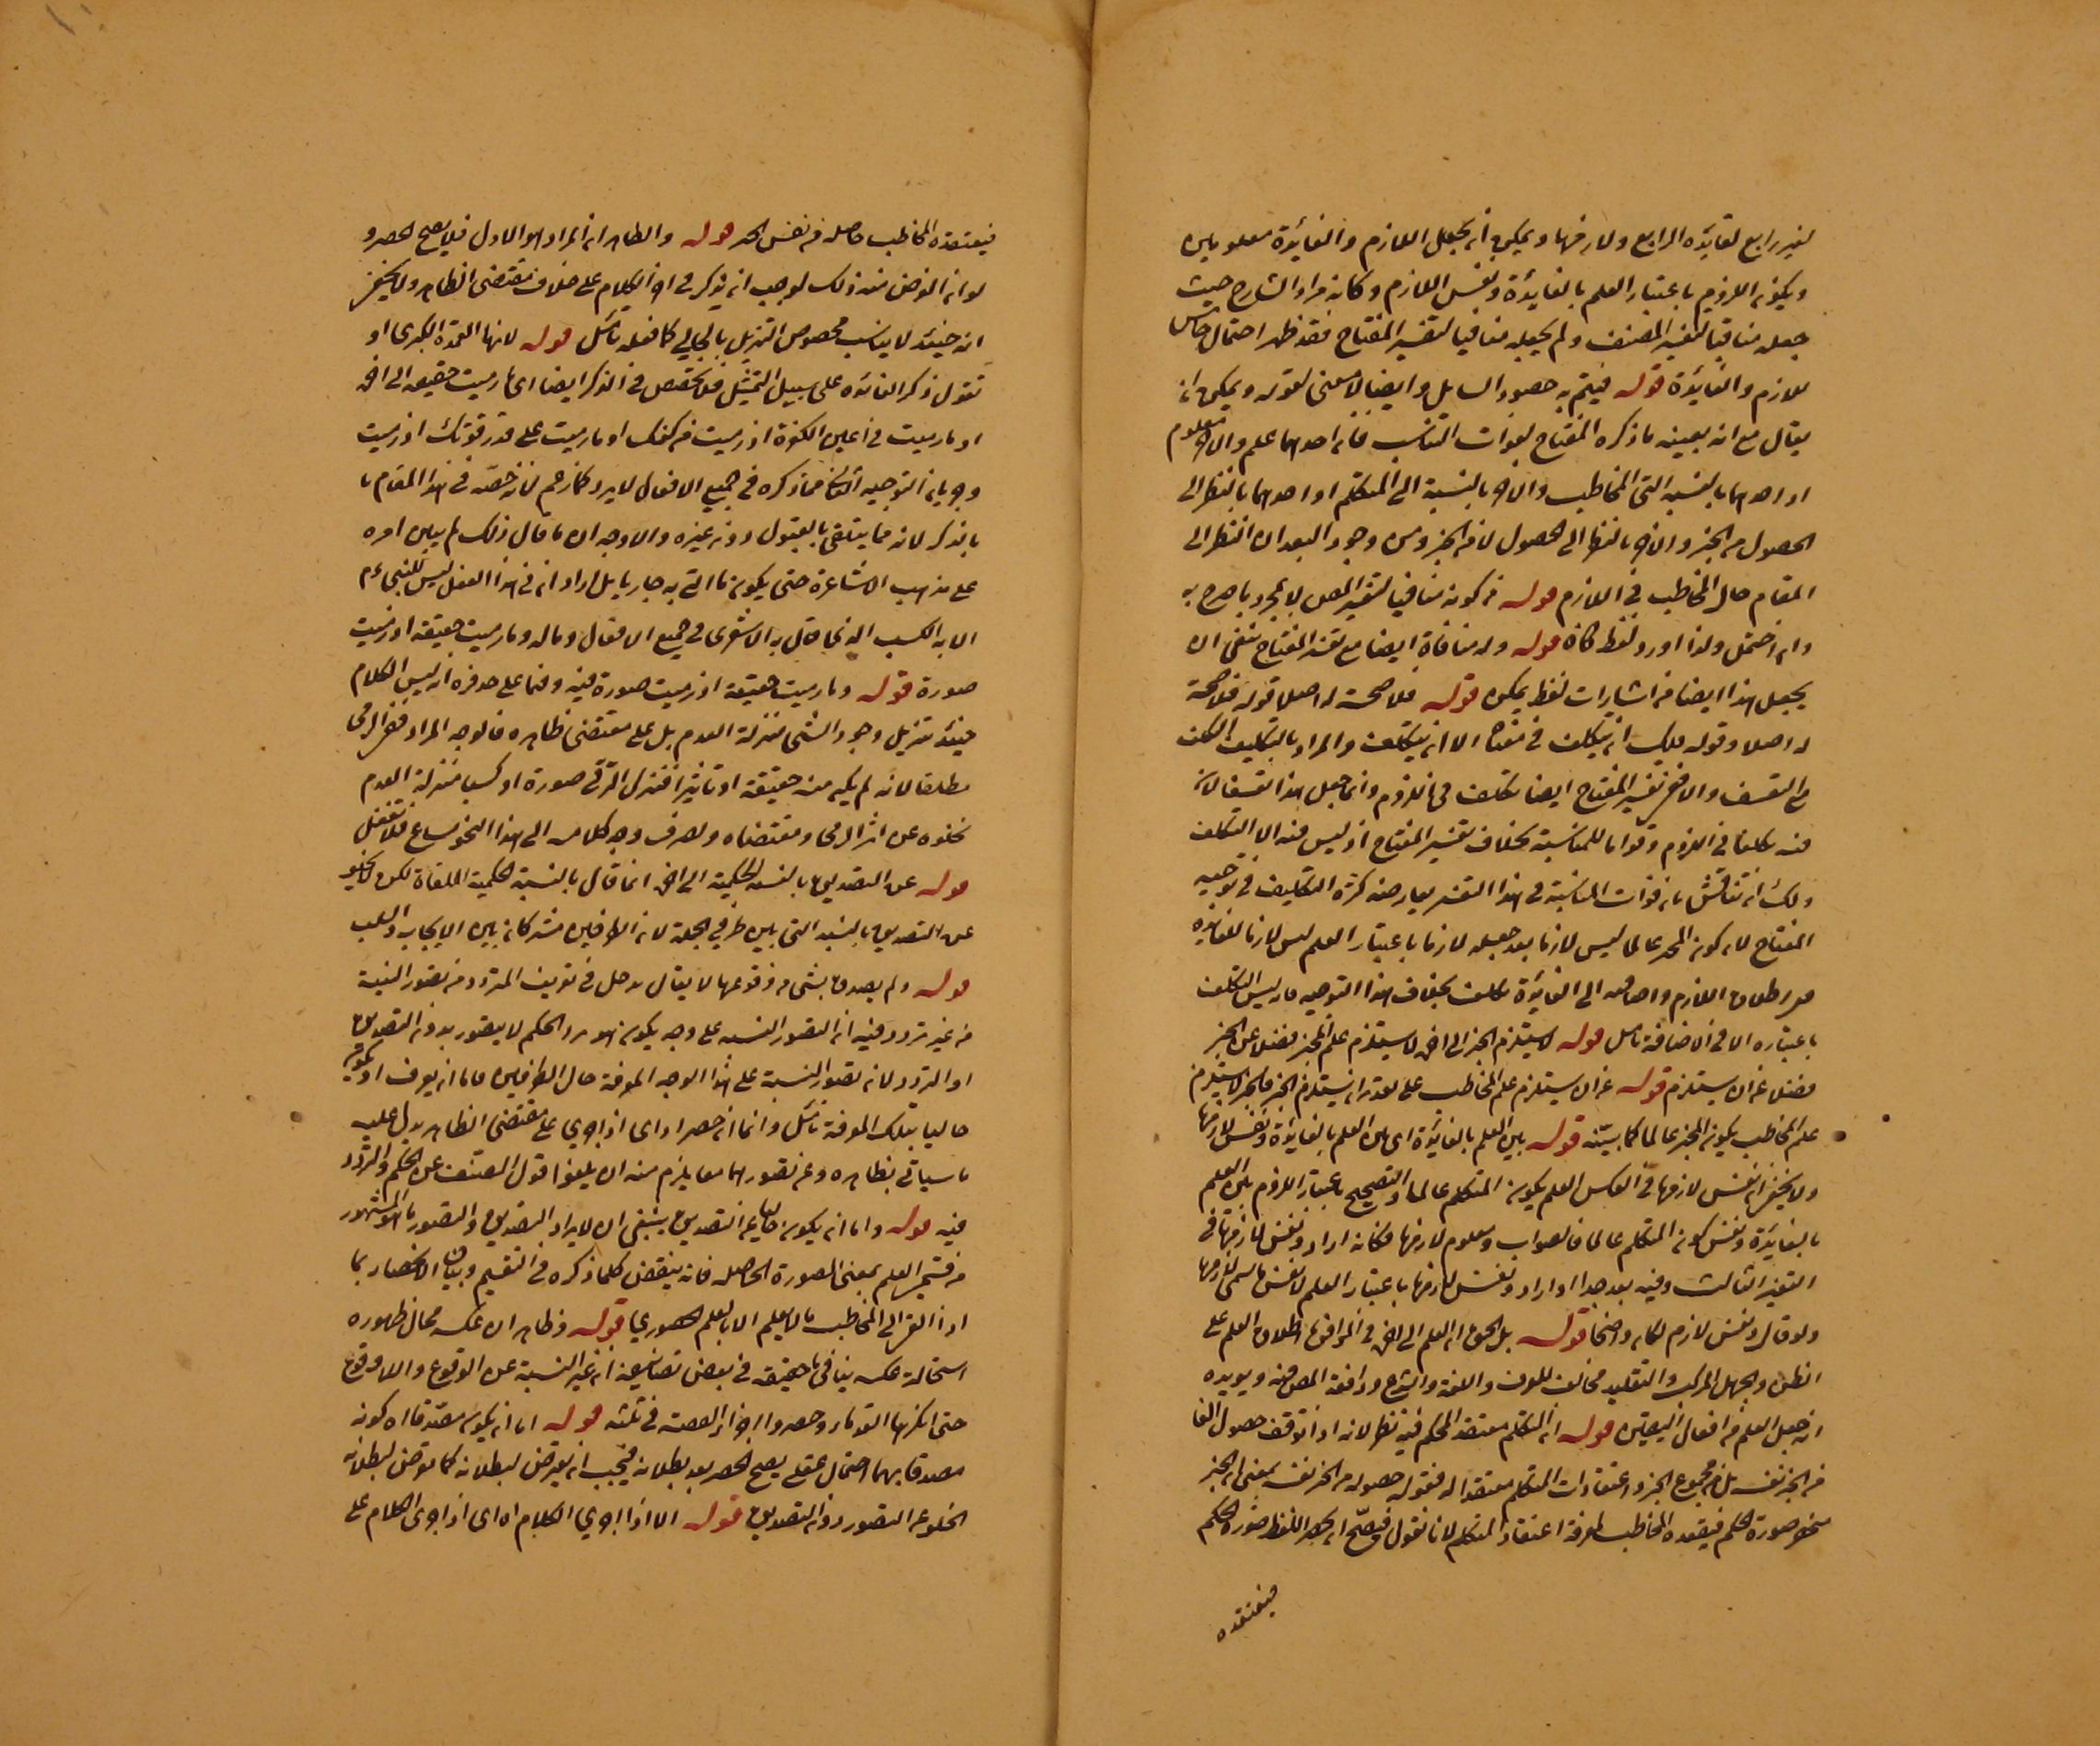 لغير رابع لفائدة الرابع ولازمها ويمكن ان يجعل اللازم والفائدة معلومين
ويكون اللزوم باعتبار العلم بالفائدة ونفس اللازم وكان مراد الشارح حيث
جعله منافيا لتفسير المصنف ولم يجعله منافيا لتفسير المفتاح فقد ظهر احتمال خامس
للازم والفائدة قوله فيتم به حصور السابل وايضا لا معنى لقوله ويمكن ان
يقال مع انه بعينه ما ذكره المفتاح لفوات التناسب فان احدهما علم والاخر معلوم
او احدهما بالنسبة الى المخاطب والاخر بالنسبة الى المتكلم او احدهما بالنظر الى
الحصول من الخبر والاخر بالنظر الى الحصول لا من الخبر ومن وجوه البعد ان النظر الى
المقام حال المخاطب في اللازم قوله من كونه منافيا لتفسير المص لا بمجرد ما صرح به
وان احتمل ولذا اورد لفظ كان قوله وله منافاة ايضا مع تفسير المفتاح ينبغي ان
يجعل هذا ايضا من اشارات لفظ يمكن قوله فلا صحة له اصلا قوله فلا صحة
له اصلا وقوله عليك ان يتكلف في معناه الا ان يتكلف والمراد بالتكليف التكلف
مع التعسف والا ففي تفسير المفتاح ايضا تكلف في اللزوم وانما جعل هذا تعسفا لان
فيه تكلفا في اللزوم وفواتا للمناسبة بخلاف تفسير المفتاح اذ ليس فيه الا التكلف
ولك ان تناقش بان فوات المناسبة في هذا التفسير يعارضه كثرة التكليف في توجيه
المفتاح لان كون المخبر عالما ليس لازما بعد جعله لازما باعتبار العلم ليس لازما للفائدة
ففي اطلاق اللازم واضافته الى الفائدة تكلف بخلاف هذا التوجيه فانه ليس التكلف
باعتباره الا في الاضافة تأمل قوله لا يستلزم الخبر الى اخره لا يستلزم علم المخبر فضلا عن الخبر
فضلا عن ان يستلزم قوله عن ان يستلزم علم المخاطب على تقدير ان يستلزم الخبر فالخبر لا يستلزم
علم المخاطب بكون المخبر عالما كما بينه قوله بين العلم بالفائدة اى بين العلم بالفائدة ونفس لازمها
ولا يخفى ان نفس لازمها في العكس العلم بكون المتكلم عالما والتصحيح باعتبار اللزوم بين العلم
بالفائدة ونفس كون المتكلم عالما فالصواب ومعلوم لازمها فكانه اراد ونفس لازمها في
التفسير الثالث وفيه بعد جدا او اراد ونفس لازمها باعتبار العلم لا نفس ما سمى لازمها
ولو قال ونفس لازم لكان واضحا قوله بل الحق ان العلم الى اخره في المواقف اطلاق العلم على
الظن والجهل المركب والتقليد مخالف للعرف واللغة والشرع ووافقه المص فيه ويويده
انه جعل العلم من افعال اليقين قوله ان المتكلم معتقد للحكم فيه نظر لانه اذا توقف حصول الفا
من الخبر نفسه بل من مجموع الخبر واعتقادات المتكلم معتقدا له فقوله حصوله من الخبر نفسه بمعنى ان الخبر
يحضر صورة الحكم فيقصده المخاطب لمعرفة اعتقاد المتكلم لانا نقول فيصح ان يحضر اللفظ صورة الحكم
فيعتقده
فيعتقده المخاطب حاصله من نفس الخبر قوله والظاهر ان المراد هو الاول فلا يصح الحصر و
لو ان الغرض منه ذلك لوجب ان يذكر في اخراج الكلام على خلاف مقتضى الظاهر ولا يخفى
انه حينئذ لا يناسب تخصيص التنزيل بالخالي كما فعله تأمل قوله لانها العمدة الكبرى او
نقول ذكر الفائدة على سبيل التمثيل فلا تخصيص في الذكر ايضا اى ما رميت حقيقة الى اخره
او ما رميت في اعين الكفرة اذ رميت من كفك او ما رميت على قدر قوتك اذ رميت
وجريان التوجيه الثاني مما ذكره في جميع الافعال لا يرد كما زعم لانه خصه في هذا المقام
بالذكر لانه مما يتلقى بالقبول دون غيره والاوجه ان ما قال ذلك لم يبين امره
على مذهب الاشاعرة حتى يكون ما اتى به جاريا بل اراد انه في هذا الفعل ليس للنبي ءم
الا الكسب الذي قال به الاشعرى في جميع الافعال وماله وما رميت حقيقة اذ رميت
صورة قوله وما رميت حقيقة اذ رميت صورة فيه وفيما على حذفه انه ليس الكلام
حينئذ تنزيل وجود الشئ منزلة العدم بل على مقتضى ظاهره فالوجه المراد نفى الرمى
مطلقا لانه لم يكن منه حقيقة او تأثيرا فنزل الرمى صورة او كسبا منزلة العدم
لخلوه عن اثر الرمى ومقتضاه ولصرف وجه كلامه الى هذا النحو مساغ فلا تغفل
قوله عن التصديق بالنسبة الحكمية الى اخره انما قال بالنسبة الحكمية الملقاة لكن
عن التصديق بالنسبة التي بين طرفي الجملة لان الطرفين مشتركان بين الايجاب والسلب
قوله ولم يصدق بشئ من وقوعها لا يقال يدخل في تعريف المتردد من تصور النسبة
من غير تردد فيه ان التصور النسبة على وجه يكون هو مرد الحكم لا يتصور بدون التصديق
او التردد لانه تصور النسبة على هذا الوجه لمعرفة حال الطرفين فاما ان يعرف او يكون
طالبا بتلك المعرفة تأمل وانما انحصر اداى اذا جرى على مقتضى الظاهر يدل عليه
ما سياتي بظاهره وعن تصورهما معا يلزم منه ان يلغو قول المصنف عن الحكم والتردد
فيه قوله واما ان يكون خاليا عن التصديق ينبغي ان لا يراد بالتصديق والتصور ما هو المشهور
من قسم العلم بمعنى الصورة الحاصلة فانه ينقض كلما ذكره في التقسيم وبيان الانحصار بما
اذا القى الى المخاطب ما لا يعلم الا بالعلم الحضوري قوله وظاهر ان عكسه محال ظهوره
استحالة عكسه ينافي ما حقيقة في بعض تصانيفه ان غير النسبة عن الوقوع واللاوقوع
حتى انكرها القدماء وحصروا اجزاء القضية في ثلثة قوله اما ان يكون مصدقا اى كونه
مصدقا بهما احتمال عقلى يصح الحصر بعد بطلانه فيجب ان يعرض لبطلانه كما تعرض لبطلانه
الخلو عن التصور دون التصديق قوله الا اذا اجرى الكلام اه اى اذا جرى الكلام على